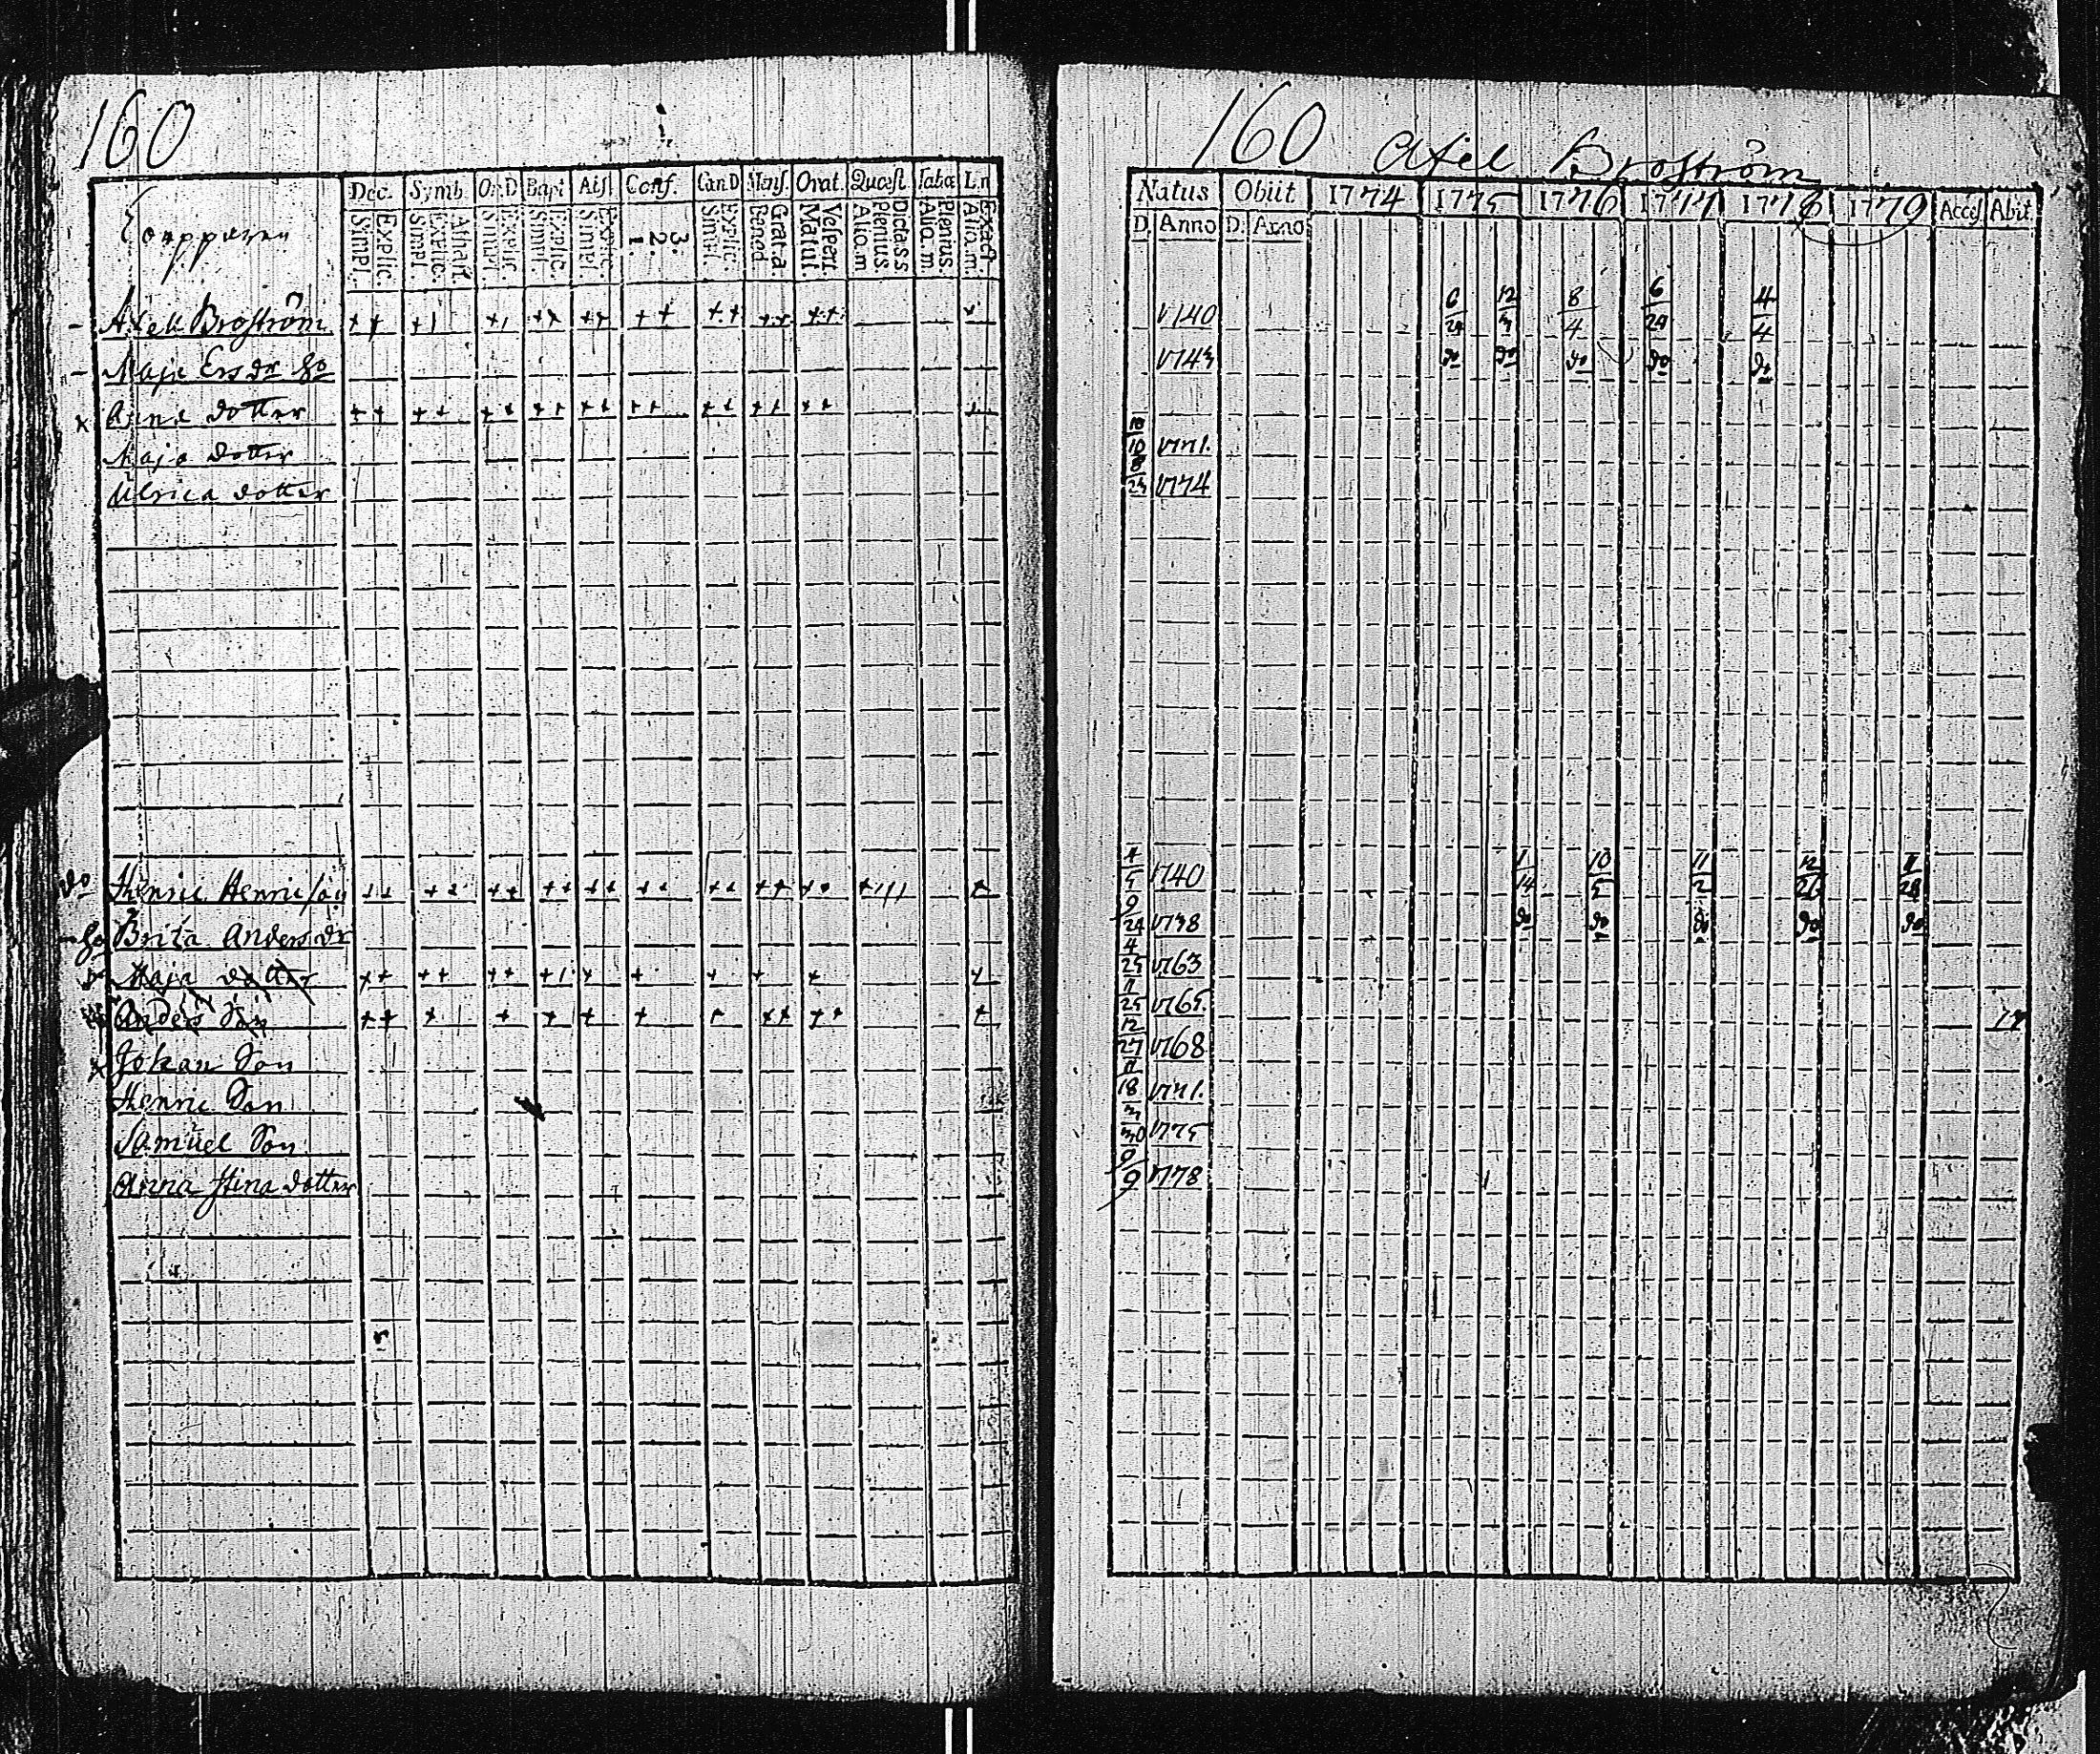 160
Dec. Symb. Or.D Bapt Abs. Conf. Can D Mens. Orat. Quæst. Tabæ L.n
Explic. Simpl. Athan. Explic. Simpl. Explic. Simpl. Explic. Simpl. Explic. Simpl. 3. 2. 1. Explic. Simpl. Grat.a. Bened. Vespert. Matut. Dictass Plenius. Aliq.m Plenius. Aliq.m. Exact. Aliq.m.
Torpparen
Axell Broström
Maja Ersdr ho
Anna dotter
Maja dotter
Ulrica dotter
do Henric Henricsson
ho Brita Andersdr
Maja dotter
Anders Son
Johan Son
Henric Son
Samuel Son
Anna Stina dotter
160 Axel Broström
Natus Obiit 1774 1775 1776 1777 1778 1779 Acces. Abit.
D. Anno D. Anno
1740 6/24 12/3 8/4 6/29 4/4
1743 do do do do do
10/10 1771.
8/23 1774
4/5 1740 1/14 10/5 11/2 12/26 11/28
9/24 1738 do do do do do
4/25 1763
11/25 1765.
12/27 1768
11/18 1771.
3/30 1775
9/9 1778